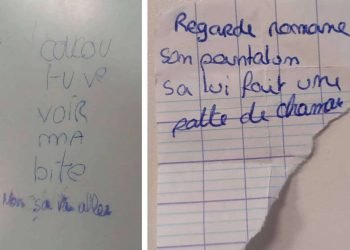 coucou
tu ve
voir
ma
bite
Non sa va aller
Regarde romane
son pantalon
sa lui fait une
patte de chameau